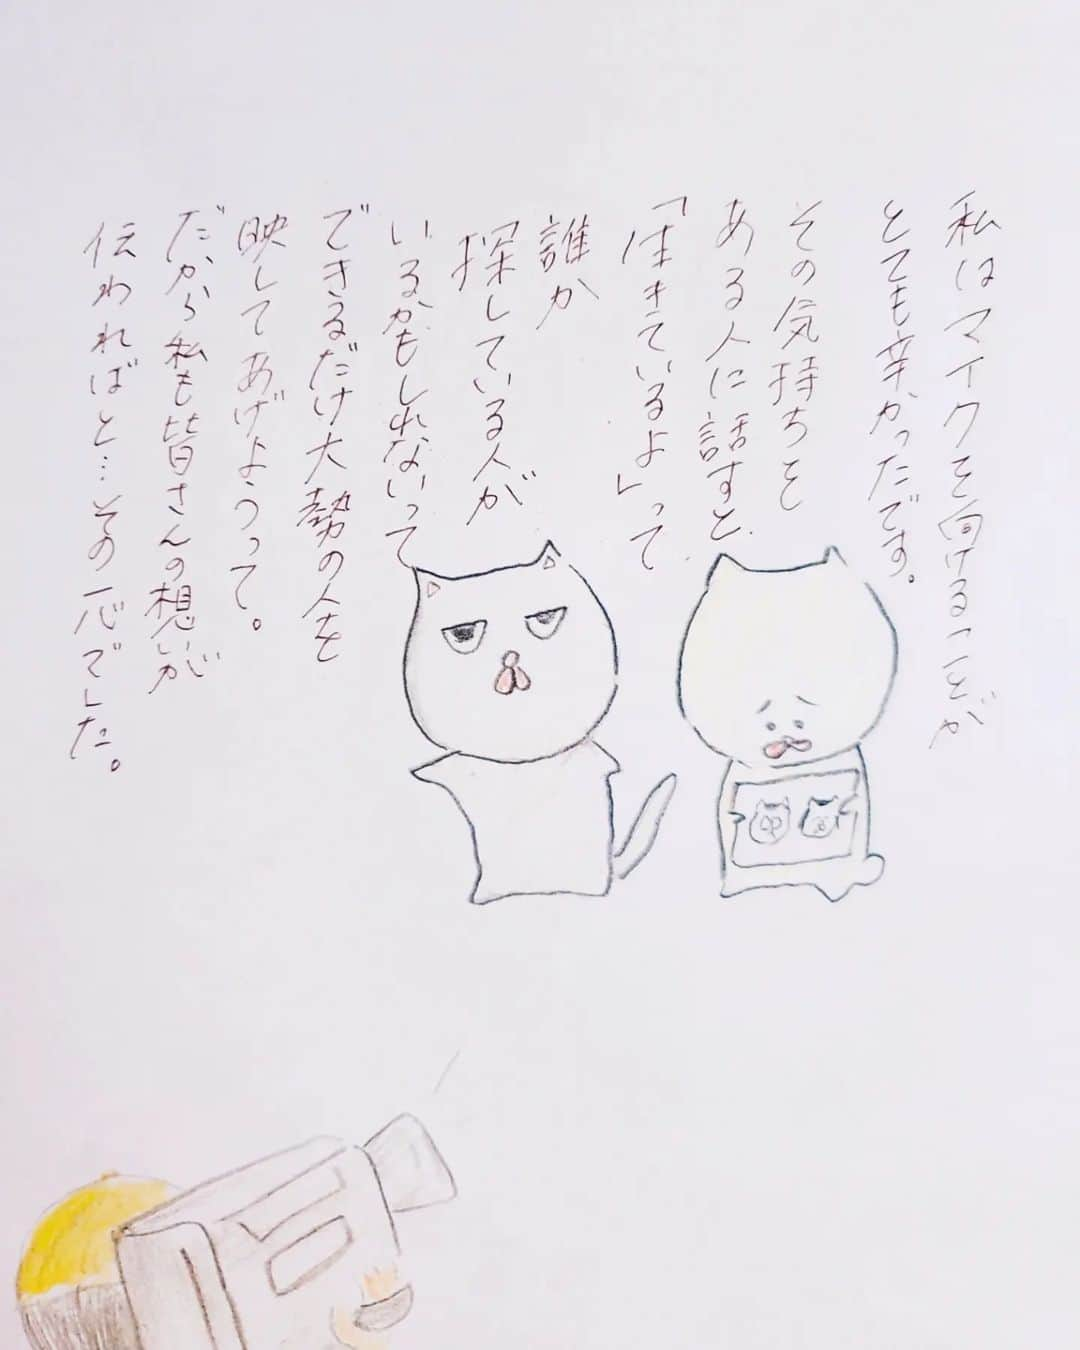 私はマイクを向けることが
とても辛かったです。
その気持ちを
ある人に話すと、
「生きているよ」って
誰か
探している人が
いるかもしれないって
できるだけ大勢の人を
映してあげようって。
だから私も皆さんの想いが
伝わればと…その一心でした。